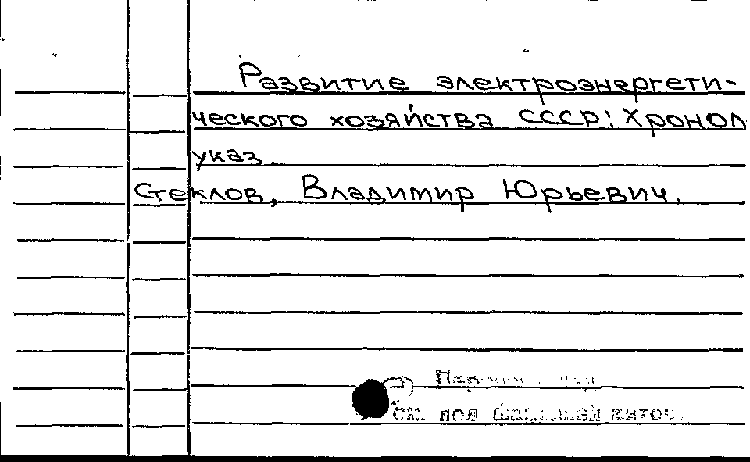 Развитие электроэнергети-
ческого хозяйства СССР: Хронол.
указ
Стеклов, Владимир Юрьевич.
См. под